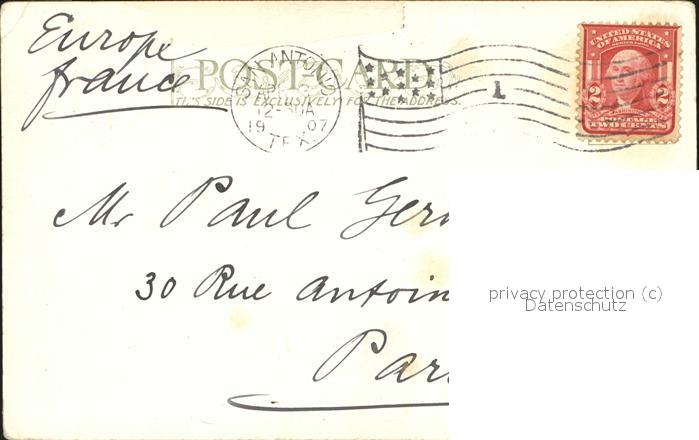 Europe
france
POST-CARD
THIS SIDE IS EXCLUSIVELY FOR THE ADDRESS.
SAN ANTONIO
19 07
TEX.
1
UNITED STATES
OF AMERICA
2 2
POSTAGE
TWO CENTS
Mr Paul
30 Rue Antoin
Par
privacy protection (c)
Datenschutz